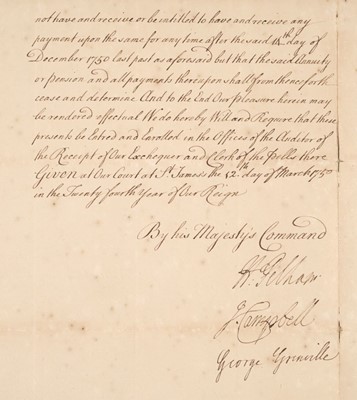 not have and receive or be intitled to have and receive any
payment upon the same for any time after the said day of
December 1750 last past as aforesaid but that the said Annuity
or pension and all payments thereupon shall from thenceforth
cease and determine And to the End Our pleasure herein may
be rendered effectual We do hereby Will and Require that these
presents be Entred and Enrolled in the Offices of the Auditor
of the Receipt of Our Exchequer and Clerk of the Pells there
Given at Our Court at St. James's the 12th day of March 1750
in the Twenty fourth Year of Our Reign
By his Majestys Command
H Pelham
J Campbell
George Grinville